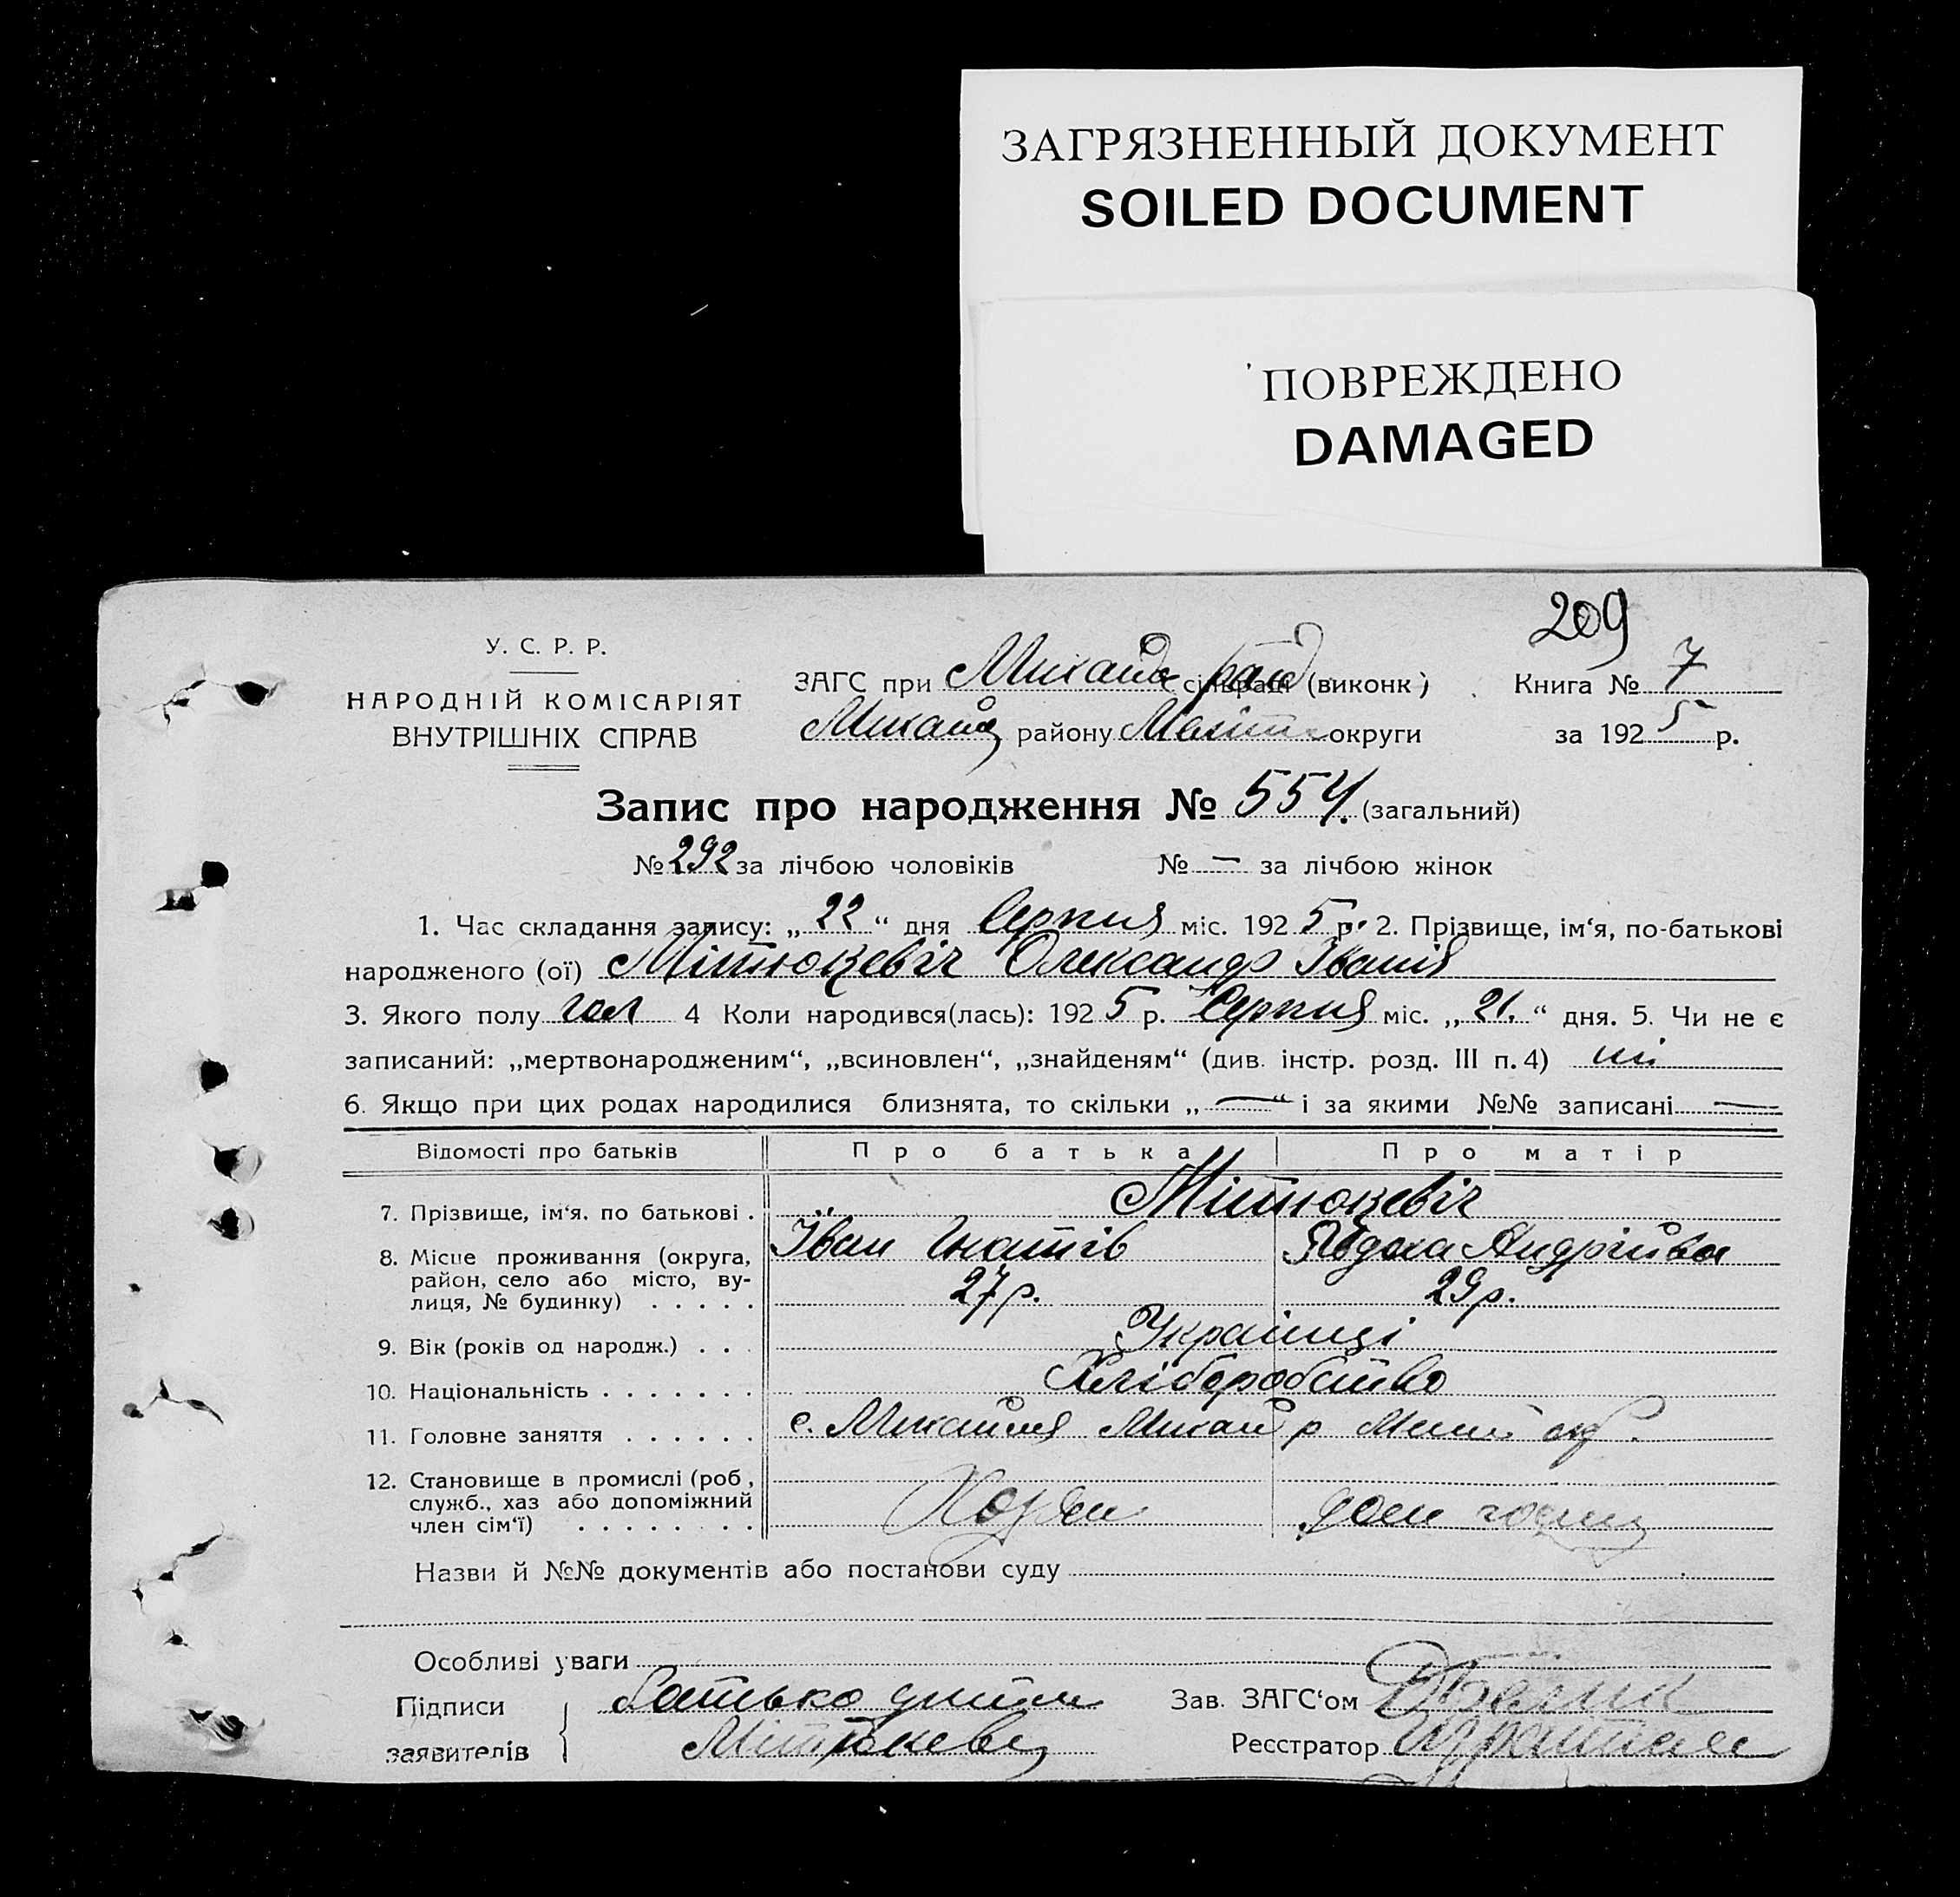 ЗАГРЯЗНЕННЫЙ ДОКУМЕНТ
SOILED DOCUMENT
ПОВРЕЖДЕНО
DAMAGED
209
У. С. Р. Р.
НАРОДНІЙ КОМІСАРІЯТ
ВНУТРІШНІХ СПРАВ
ЗАГС при сільраді (виконк)
району округи
Книга № 7
за 1925 р.
Запис про народження № 554. (загальний)
№ 292 за лічбою чоловіків № — за лічбою жінок
1. Час складання запису: „22“ дня Серпня міс. 1925 р. 2. Прізвище, ім‘я, по-батькові
народженого (ої) Мітюкевіч Олександр Іванів
3. Якого полу чол 4 Коли народився(лась): 1925 р. Серпня міс. „21.“ дня. 5. Чи не є
записаний: „мертвонародженим“, „всиновлен“, „знайденям“ (див. інстр. розд. III п. 4) ні
6. Якщо при цих родах народилися близнята, то скільки „—“ і за якими №№ записані —
Відомості про батьків Про батька Про матір
7. Прізвище, ім‘я. по батькові . Мітюкевіч
8. Місце проживання (округа, Іван Гнатів Явдоха Андріівна
район, село або місто, ву-
лиця, № будинку) . . . . . 27 р. 29 р.
9. Вік (років од народж.) . . . Українці
10. Національність . . . . . . . Хліборобство
11. Головне заняття . . . . . . с. р
12. Становище в промислі (роб,
служб., хаз або допоміжний
член сім‘ї) . . . . . . . .
Назви й №№ документів або постанови суду
Особливі уваги
Підписи Батько дитини Зав. ЗАГС‘ом
заявителів Реєстратор